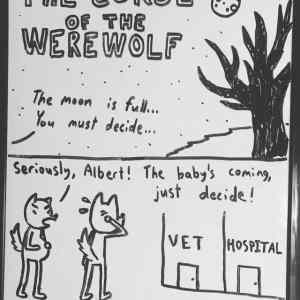 THE CURSE
OF THE
WEREWOLF
The moon is full...
You must decide...
Seriously, Albert! The baby's coming,
just decide!
VET
HOSPITAL